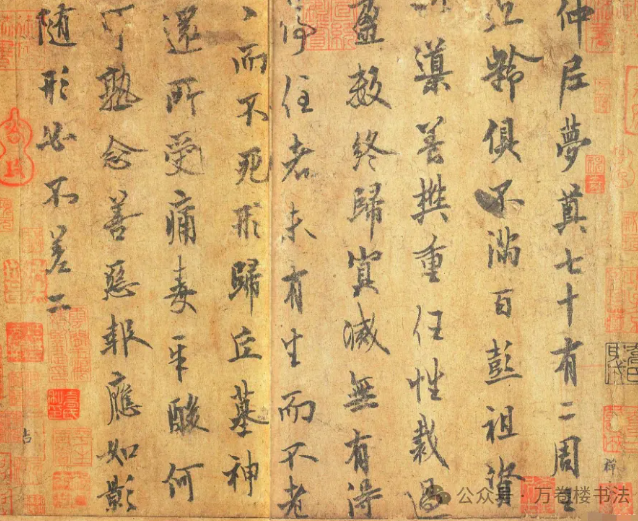 仲尼夢奠七十有二周王
九齡俱不滿百彭祖資
導養樊重任性裁過
盈數終歸冥滅無有得
停住者未有生而不老
〻而不死形歸丘墓神
還所受痛毒辛酸何
可熟念善惡報應如影
隨形必不差二
公众号 · 万卷楼书法